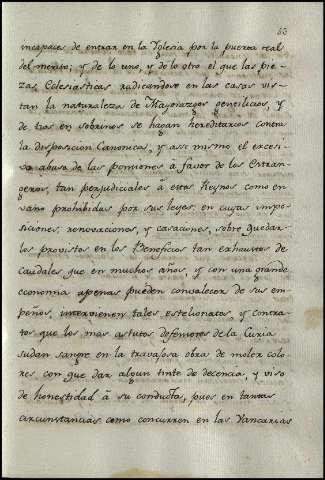 53
incapaces de entrar en la Yglesia por la puerta real
del merito; y de lo uno, y de lo otro el que las pie-
zas Eclesiasticas radicandose en las casas vis-
tan la naturaleza de Mayorazgos gentilicios, y
de tios en sobrinos se hagan hereditarios contra
la disposicion Canonica, y assi mismo el excesi-
vo abuso de las pensiones à favor de los Estran-
geros, tan perjudiciales à estos Reynos como en
vano prohibidas por sus leyes, en cuyas impo-
siciones, renovaciones, y casaciones, sobre quedar
los provistos en los Beneficios tan exhaustos de
caudales que en muchos años, y con una grande
economia apenas pueden convalecer de sus em-
peños, intervienen tales estelionatos, y contra-
tos que los mas astutos defensores de la Curia
sudan sangre en la travajosa obra de moler colo-
res con que dar algun tinte de decencia, y viso
de honestidad à su conducta, pues en tantas
circunstancias como concurren en las Vancarias